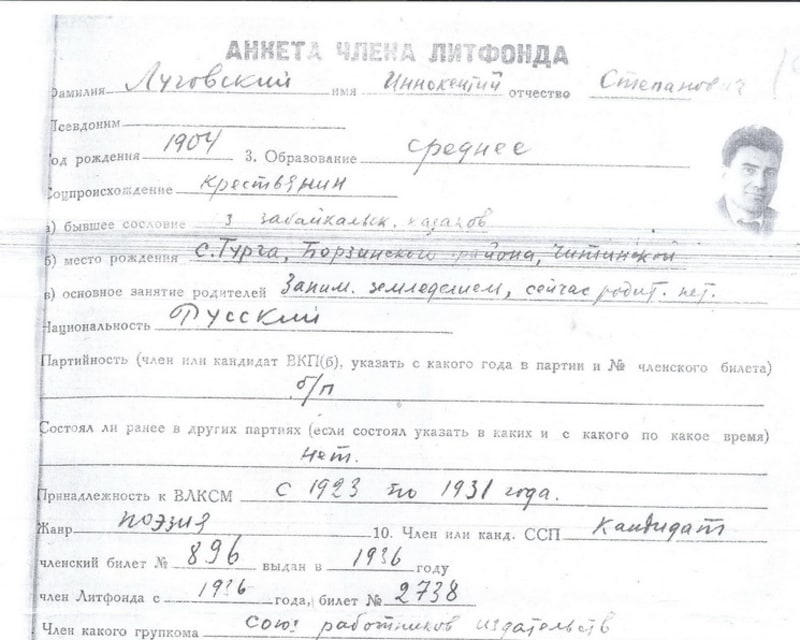 АНКЕТА ЧЛЕНА ЛИТФОНДА
Фамилия Луговский имя Иннокентий отчество Степанович
Псевдоним
год рождения 1904 3. Образование среднее
Соцпроисхождение крестьянин
а) бывшее сословие з забайкальск. казаков
б) место рождения с. Турга, Борзинского района, Читинской
в) основное занятие родителей Заним. земледелием, сейчас родит. нет.
Национальность Русский
Партийность (член или кандидат ВКП(б), указать с какого года в партии и № членского билета)
б/п
Состоял ли ранее в других партиях (если состоял указать в каких и с какого по какое время)
нет.
Принадлежность к ВЛКСМ с 1923 по 1931 года.
Жанр поэзия 10. Член или канд. ССП Кандидат
членский билет № 896 выдан в 1936 году
член Литфонда с 1936 года, билет № 2738
Член какого групкома Союз работников издательств